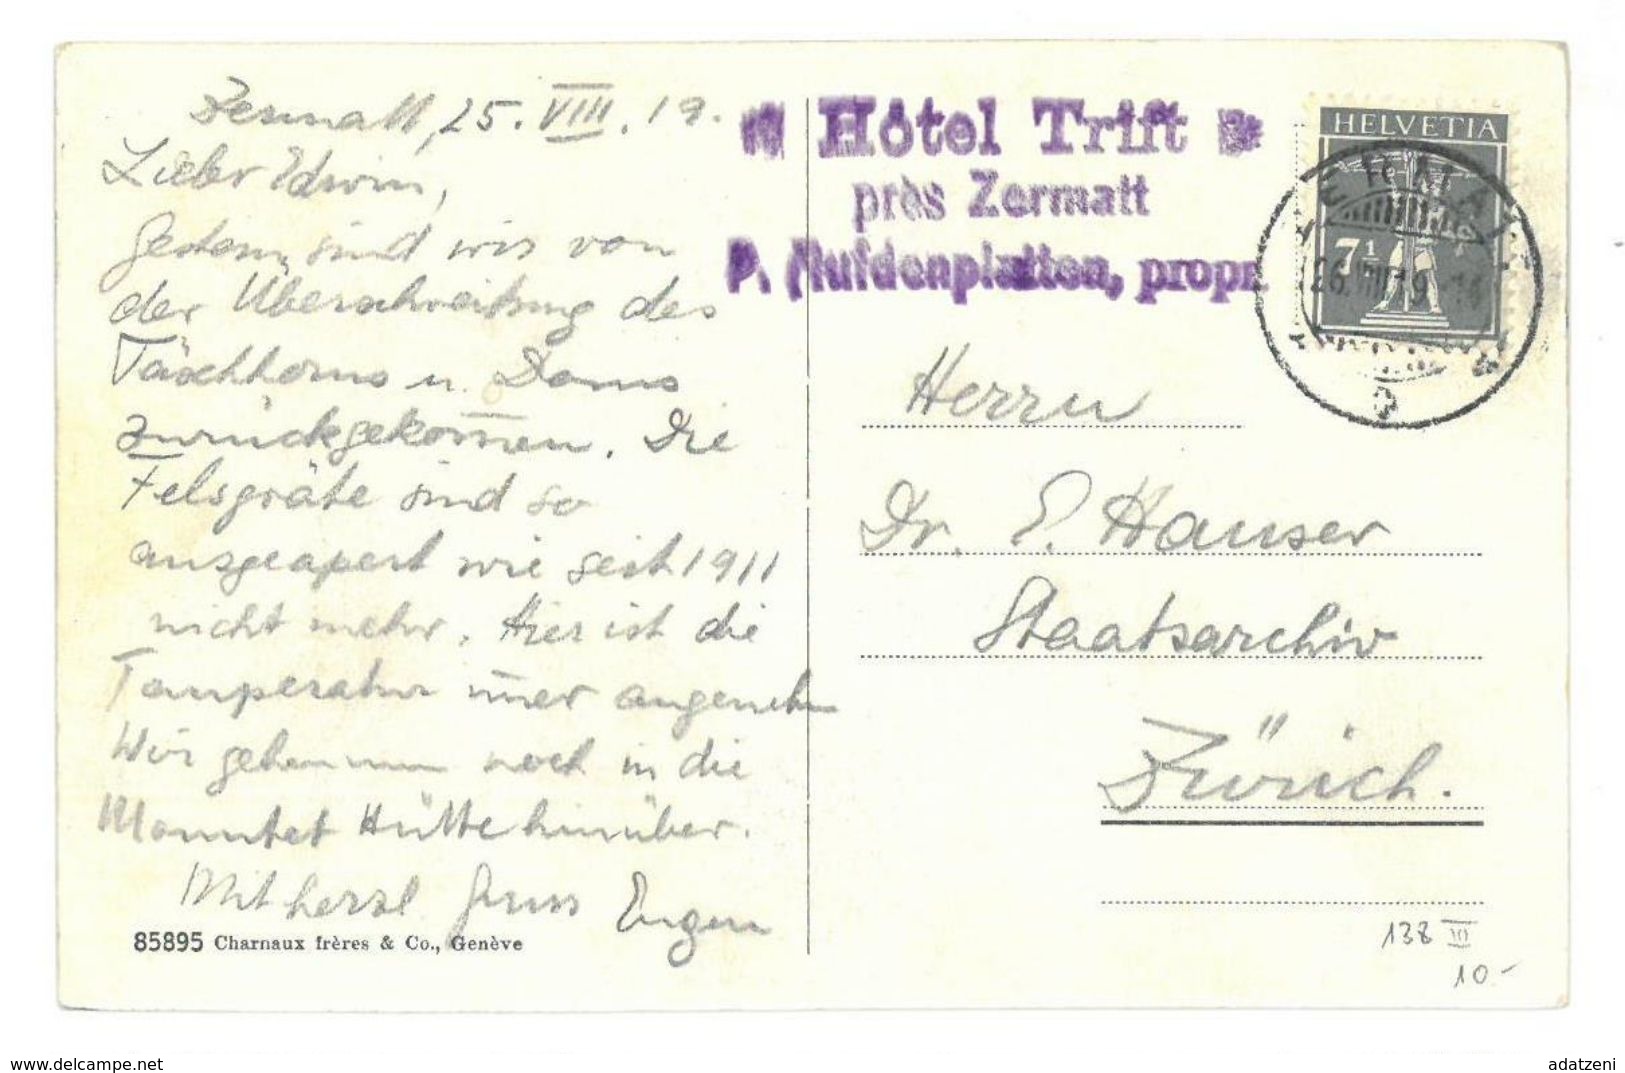 Zermatt, 25. VIII. 19.
Lieber Edwin,
Gestern sind wir von
der Überschreitung des
Täschhorns u. Doms
zurückgekom̅en. Die
Felsgräte sind so
ausgeapert wie seit 1911
nicht mehr. Hier ist die
Temperatur im̅er angenehm
Wir gehen nun noch in die
Mountet Hütte hinüber.
Mit herzl. Gruss Eugen
85895 Charnaux frères & Co., Genève
Hôtel Trift
près Zermatt
P. Aufdenplatten, propr.
HELVETIA
7½
26.VIII.19
Herrn
Dr. E. Hauser
Staatsarchiv
Zürich.
138 III
10.-
www.delcampe.net
adatzeni